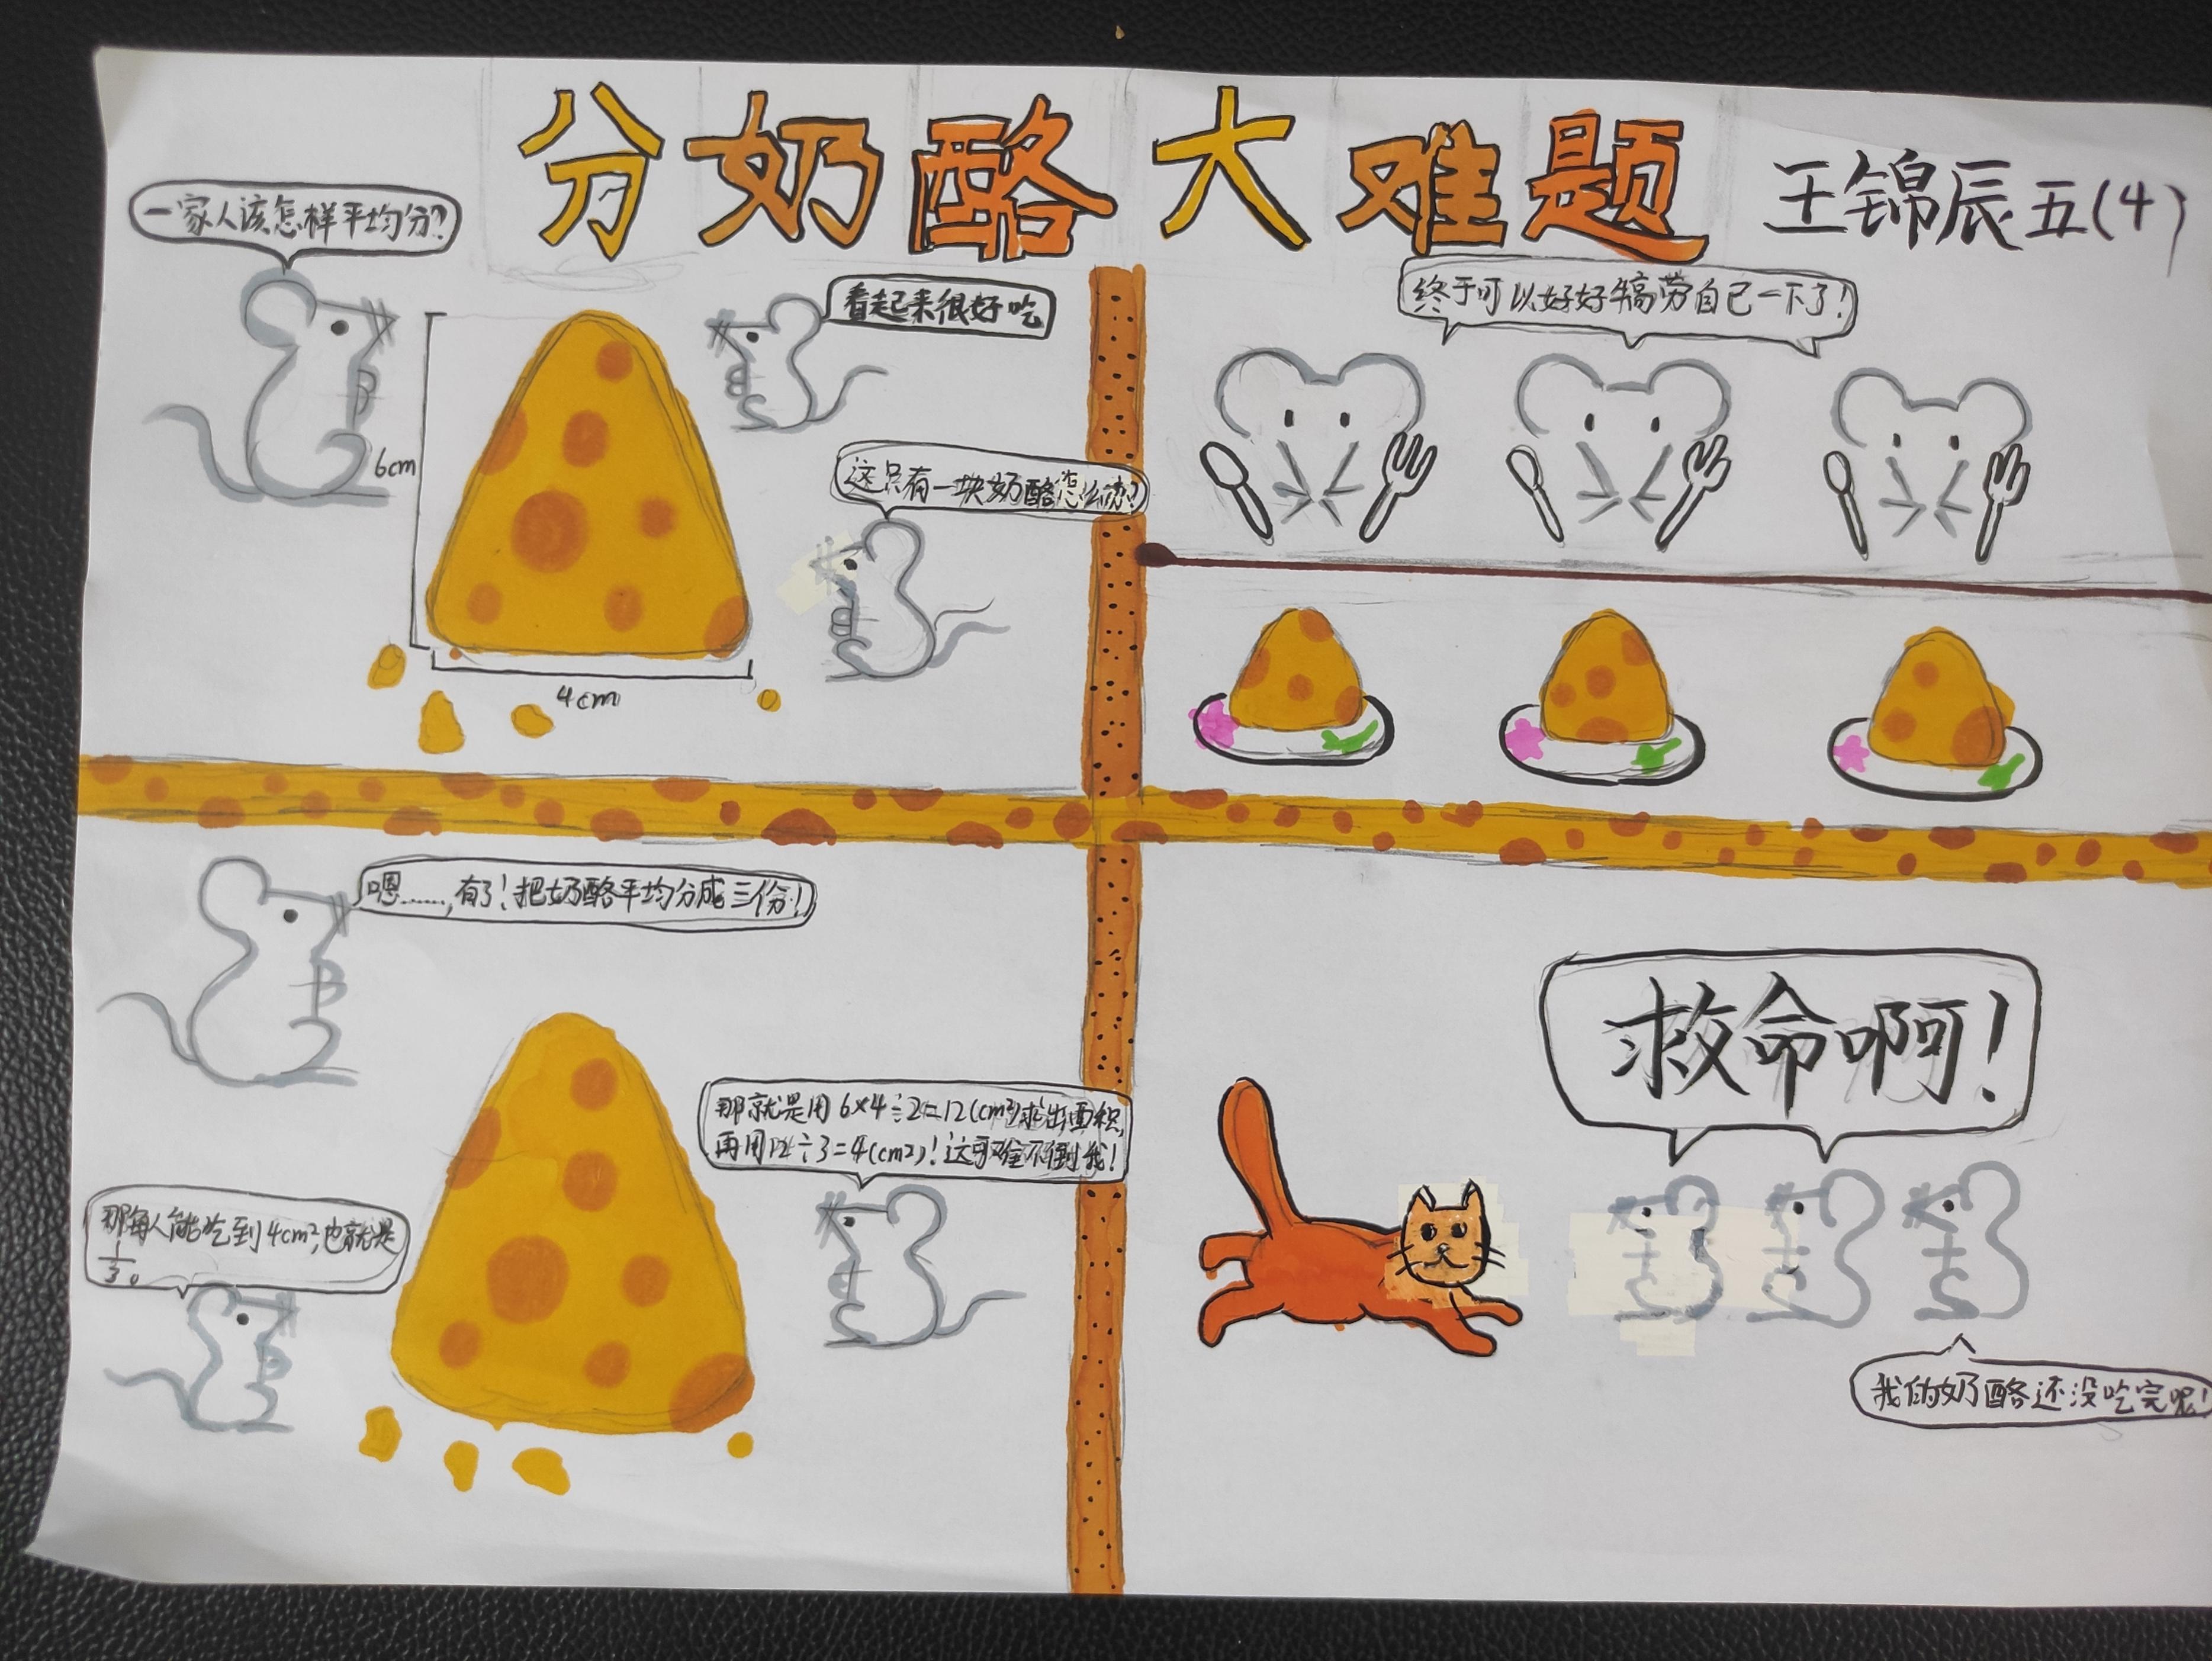 分奶酪大难题
王锦辰 五(4)
一家人该怎样平均分?
看起来很好吃
6cm
这只有一块奶酪怎么办?
4cm
嗯……,有了!把奶酪平均分成三份!
那就是用6×4÷2=12(cm²)求出面积,
再用12÷3=4(cm²)!这可难不倒我!
那每人能吃到4cm²,也就是
1/3。
终于可以好好犒劳自己一下了!
救命啊!
我的奶酪还没吃完呢!